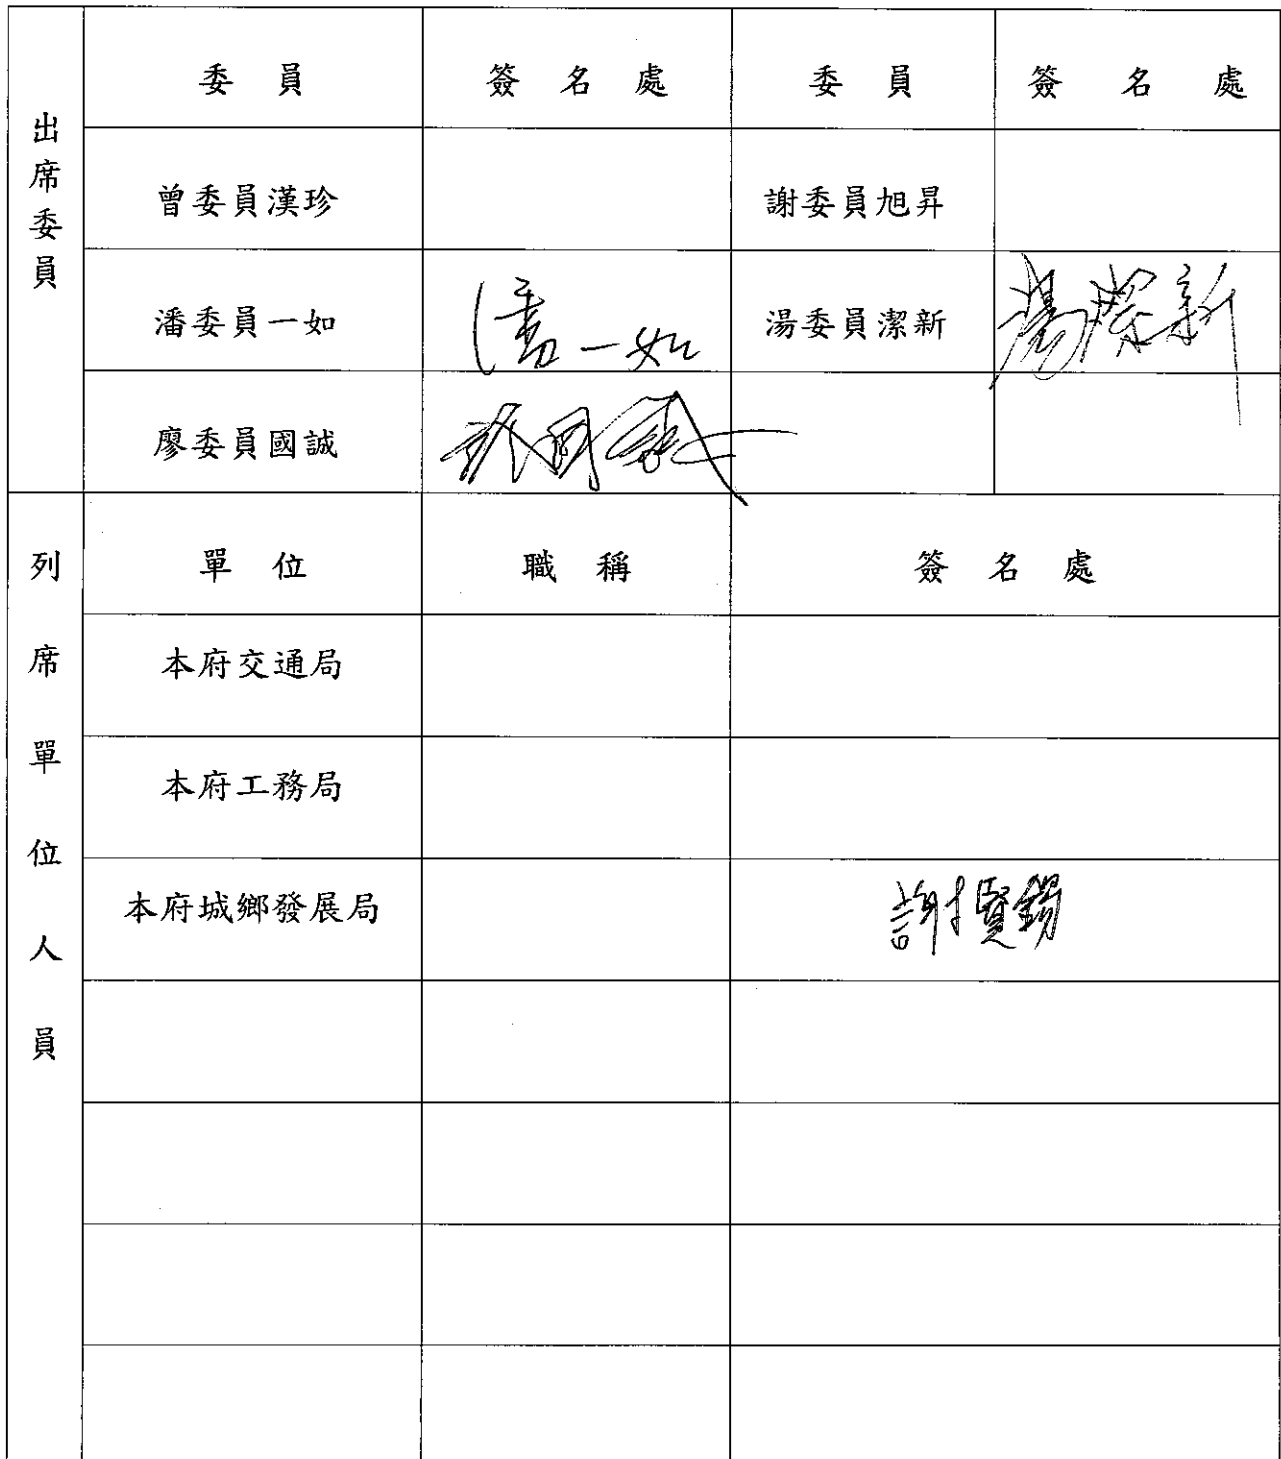 出席委員
委員 簽名處 委員 簽名處
曾委員漢珍 謝委員旭昇
潘委員一如 潘一如 湯委員潔新 湯潔新
廖委員國誠 廖國誠
列席單位人員
單位 職稱 簽名處
本府交通局
本府工務局
本府城鄉發展局 謝賢錫